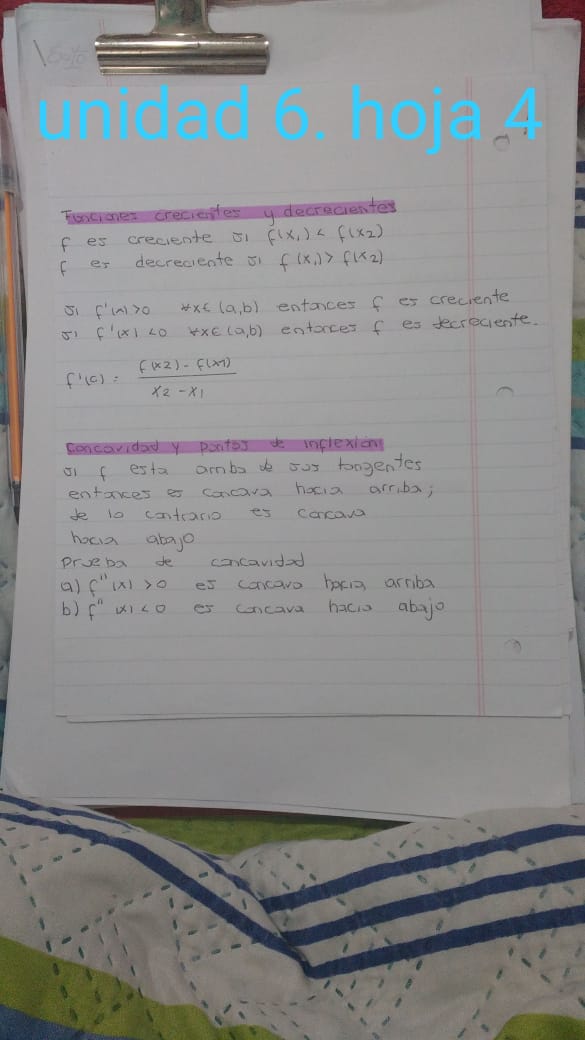 unidad 6. hoja 4
Funciones crecientes y decrecientes
f es creciente si f(x₁) < f(x2)
f es decreciente si f(x₁) > f(x2)
si f'(x) >0 ∀x∈ (a,b) entonces f es creciente
si f'(x) <0 ∀x∈ (a,b) entonces f es decreciente.
f'(c) = f(x2) - f(x1) / x2 - x1
Concavidad y puntos de inflexión
si f esta arriba de sus tangentes
entonces es concava hacia arriba;
de lo contrario es concava
hacia abajo
Prueba de concavidad
a) f''(x) >0 es concava hacia arriba
b) f''(x) <0 es concava hacia abajo